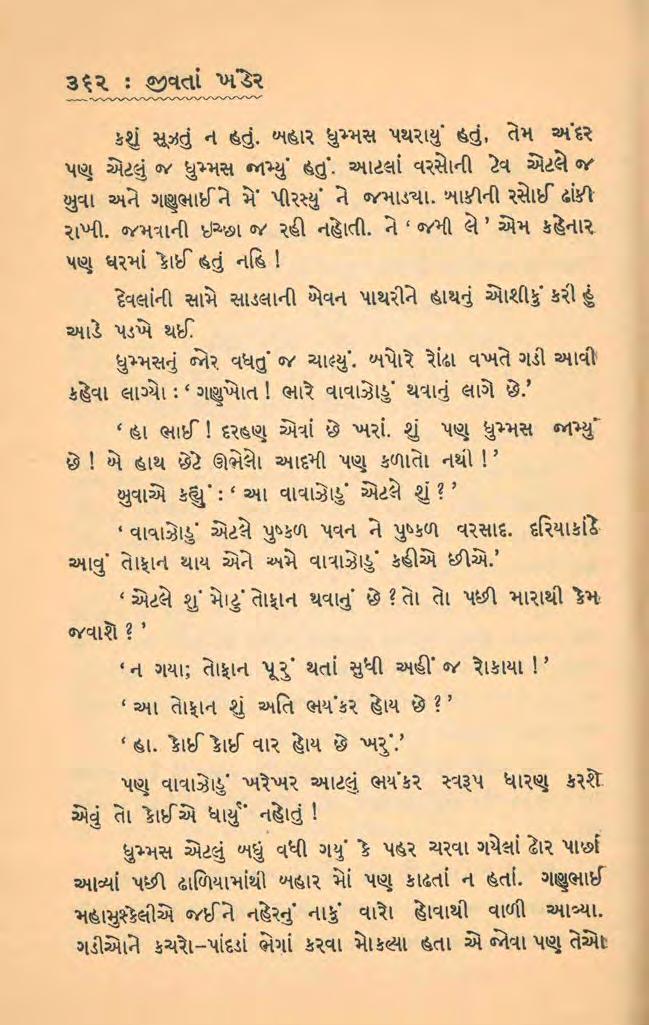 ૩૬૨ : જીવતાં ખંડેર
કશું સૂઝતું ન હતું. બહાર ધુમ્મસ પથરાયું હતું, તેમ અંદર
પણ એટલું જ ધુમ્મસ જામ્યું હતું. આટલાં વરસોની ટેવ એટલે જ
બુવા અને ગણુભાઈને મેં પીરસ્યું ને જમાડ્યા. બાકીની રસોઈ ઢાંકી
રાખી. જમવાની ઇચ્છા જ રહી નહોતી. ને ‘જમી લે’ એમ કહેનાર
પણ ઘરમાં કોઈ હતું નહિ !
દેવલાંની સામે સાડલાની બેવન પાથરીને હાથનું ઓશીકું કરી હું
આડે પડખે થઈ.
ધુમ્મસનું જોર વધતું જ ચાલ્યું. બપોરે રોંઢા વખતે ગડી આવી
કહેવા લાગ્યો : ‘ગણુખોત ! ભારે વાવાઝોડું થવાનું લાગે છે.’
‘હા ભાઈ ! દરહણ એવાં છે ખરાં. શું પણ ધુમ્મસ જામ્યું
છે ! બે હાથ છેટે ઊભેલો આદમી પણ કળાતો નથી !’
બુવાએ કહ્યું : ‘આ વાવાઝોડું એટલે શું ?’
‘વાવાઝોડું એટલે પુષ્કળ પવન ને પુષ્કળ વરસાદ. દરિયાકાંઠે
આવું તોફાન થાય એને અમે વાવાઝોડું કહીએ છીએ.’
‘એટલે શું મોટું તોફાન થવાનું છે ? તો તો પછી મારાથી કેમ
જવાશે ?’
‘ન ગયા; તોફાન પૂરું થતાં સુધી અહીં જ રોકાયા !’
‘આ તોફાન શું અતિ ભયંકર હોય છે ?’
‘હા. કોઈ કોઈ વાર હોય છે ખરું.’
પણ વાવાઝોડું ખરેખર આટલું ભયંકર સ્વરૂપ ધારણ કરશે
એવું તો કોઈએ ધાર્યું નહોતું !
ધુમ્મસ એટલું બધું વધી ગયું કે પહર ચરવા ગયેલાં ઢોર પાછાં
આવ્યાં પછી ઢાળિયામાંથી બહાર મોં પણ કાઢતાં ન હતાં. ગણુભાઈ
મહામુસ્કેલીએ જઈને નહેરનું નાકું વારો હોવાથી વાળી આવ્યા.
ગડીઓને કચરો–પાંદડાં ભેગાં કરવા મોકલ્યા હતા એ જોવા પણ તેઓ